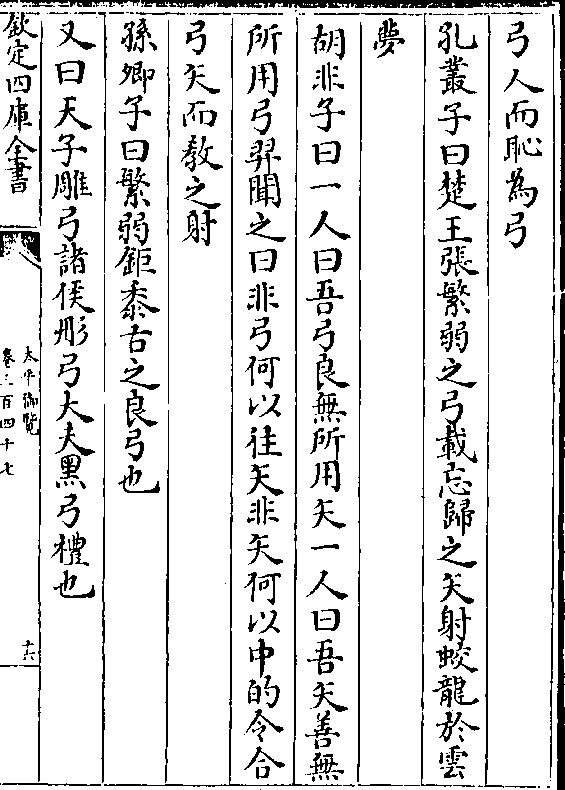 弓人而恥為弓
孔叢子曰楚王張繁弱之弓載忘歸之矢射蛟龍於雲
夢
胡非子曰一人曰吾弓良無所用矢一人曰吾矢善無
所用弓羿聞之曰非弓何以往矢非矢何以中的令合
弓矢而教之射
孫卿子曰繁弱鉅黍古之良弓也
又曰天子雕弓諸侯彤弓大夫黑弓禮也
欽定四庫全書
太平御覽
卷三百四十七
十六